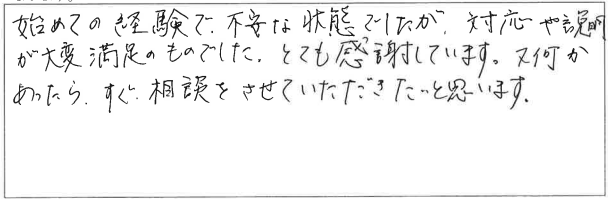 始めての経験で、不安な状態でしたが、対応や説明
が大変満足のものでした。とても感謝しています。又何か
あったら、すぐ、相談をさせていただきたいと思います。